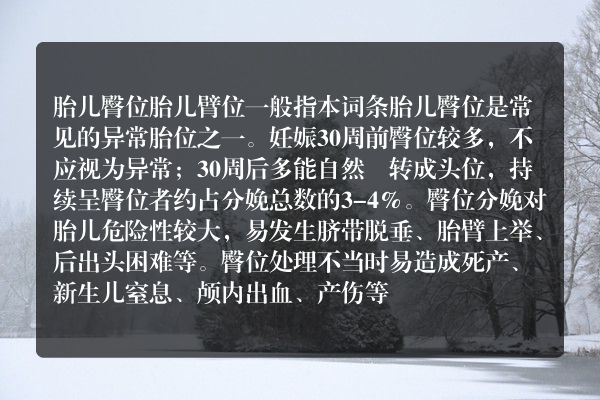 胎儿臀位胎儿臂位一般指本词条胎儿臀位是常
见的异常胎位之一。妊娠30周前臀位较多，不
应视为异常；30周后多能自然　转成头位，持
续呈臀位者约占分娩总数的3-4%。臀位分娩对
胎儿危险性较大，易发生脐带脱垂、胎臂上举、
后出头困难等。臀位处理不当时易造成死产、
新生儿窒息、颅内出血、产伤等